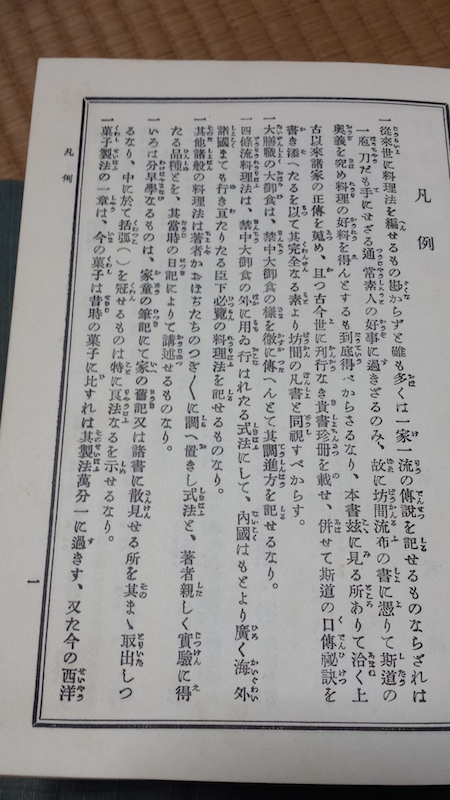 凡例
一從來世に料理法を編せるもの尠からずと雖も多くは一家一流の傳說を記せるものならざれは
一庖刀だも手にせざる通常素人の好事に過ぎざるのみ、故に坊間流布の書に憑りて斯道の
奧義を究め料理の好料を得んとするも到底得べからさるなり、本書玆に見る所ありて洽く上
古以來諸家の正傳を蒐め、且つ古今世に刊行なき貴書珍冊を載せ、併せて斯道の口傳祕訣を
書き添へたるを以て其完全なる素より坊間の凡書と同視すべからす。
一大膳職の大御食は、禁中大御食の樣を徵に傳へんとて其調進方を記せるなり。
一四條流料理法は、禁中大御食の外に用ゐ行はれたる式法にして、內國はもとより廣く海外
諸國までも行き亘りたる臣下必覽の料理法を記せるものなり。
一其他諸般の料理法は著者かおほぢたちのつぎ〱に調へ置きし式法と、著者親しく實驗に得
たる品種とを、其當時の日記によりて講述せるものなり。
一いろは分早學なるものは、家童の筆記にて家の舊記又は諸書に散見せる所を其まゝ取出しつ
るなり、中に於て括弧（）を冠せるものは特に良法なるを示せるなり。
一菓子製法の一章は、今の菓子は昔時の菓子に比すれは其製法萬分一に過きす、又た今の西洋
凡例
一